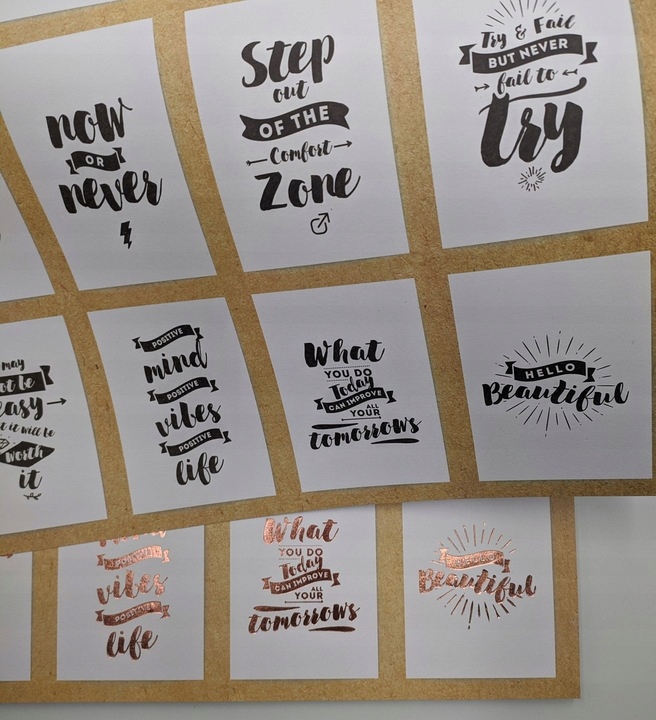 now
OR
never
Step
out
OF THE
Comfort
Zone
Try & Fail
BUT NEVER
fail to
try
may
be
easy
it will be
worth
it
POSITIVE
mind
POSITIVE
vibes
POSITIVE
life
What
YOU DO
Today
CAN IMPROVE
ALL
YOUR
tomorrows
HELLO
Beautiful
vibes
POSITIVE
life
What
YOU DO
Today
CAN IMPROVE
ALL
YOUR
tomorrows
Beautiful